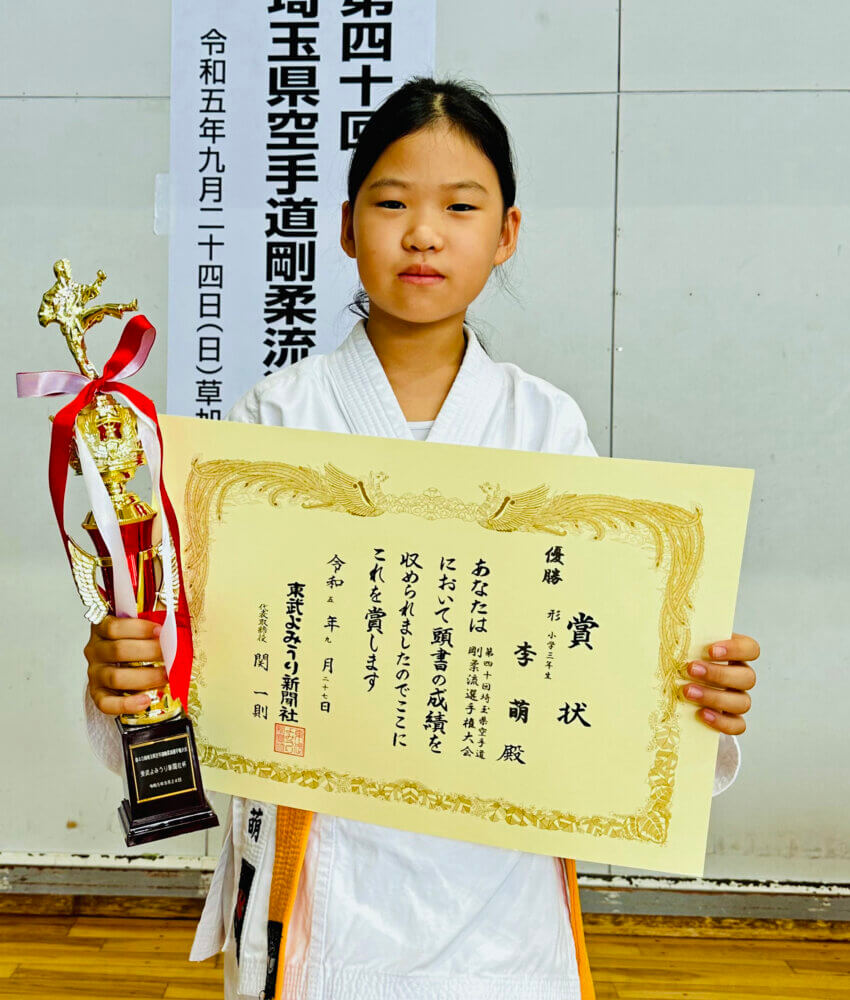 第四十回
埼玉県空手道剛柔流
令和五年九月二十四日(日)草加
賞状
優勝 形 小学三年生
李萌殿
あなたは第四十回埼玉県空手道
剛柔流選手権大会
において頭書の成績を
収められましたのでここに
これを賞します
令和五年九月二十七日
東武よみうり新聞社
代表取締役 関一則
東武よみうり新聞社杯
令和5年9月24日
萌